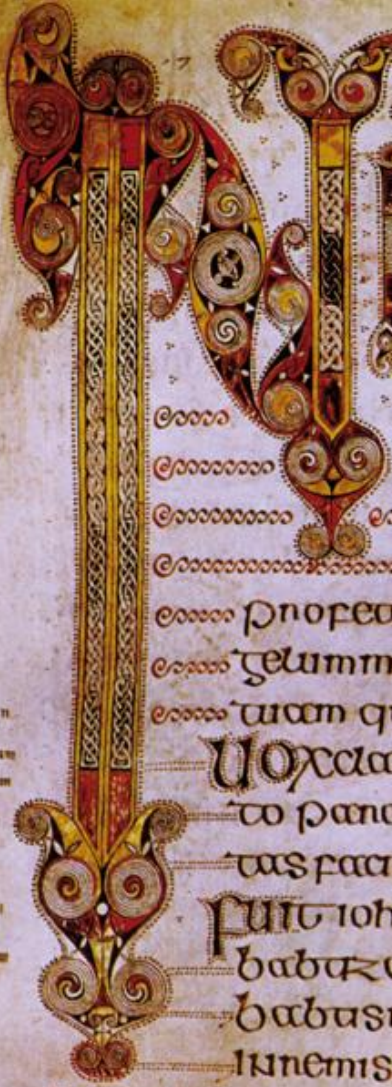 IN
profeta
gelum m
tuam qu
uox cla
to para
tas faci
fuit ioh
babtiz
babtis
in remis